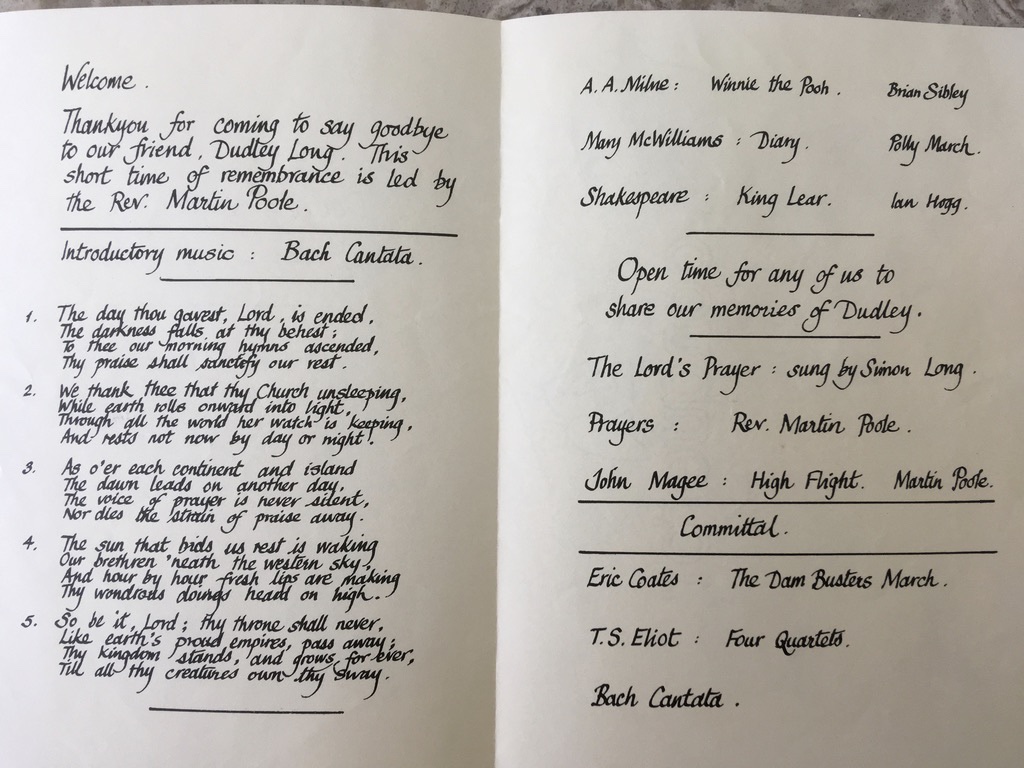 Welcome.
Thankyou for coming to say goodbye
to our friend, Dudley Long. This
short time of remembrance is led by
the Rev. Martin Poole.
Introductory music : Bach Cantata.
1. The day thou gavest, Lord, is ended,
The darkness falls at thy behest;
To thee our morning hymns ascended,
Thy praise shall sanctify our rest.
2. We thank thee that thy Church unsleeping,
While earth rolls onward into light,
Through all the world her watch is keeping,
And rests not now by day or night.
3. As o'er each continent and island
The dawn leads on another day,
The voice of prayer is never silent,
Nor dies the strain of praise away.
4. The sun that bids us rest is waking
Our brethren 'neath the western sky,
And hour by hour fresh lips are making
Thy wondrous doings heard on high.
5. So be it, Lord; thy throne shall never,
Like earth's proud empires, pass away;
Thy kingdom stands, and grows for ever,
Till all thy creatures own thy sway.
A. A. Milne : Winnie the Pooh. Brian Sibley
Mary McWilliams : Diary. Polly March.
Shakespeare : King Lear. Ian Hogg.
Open time for any of us to
share our memories of Dudley.
The Lord's Prayer : sung by Simon Long.
Prayers : Rev. Martin Poole.
John Magee : High Flight. Martin Poole.
Committal.
Eric Coates : The Dam Busters March.
T.S. Eliot : Four Quartets.
Bach Cantata.